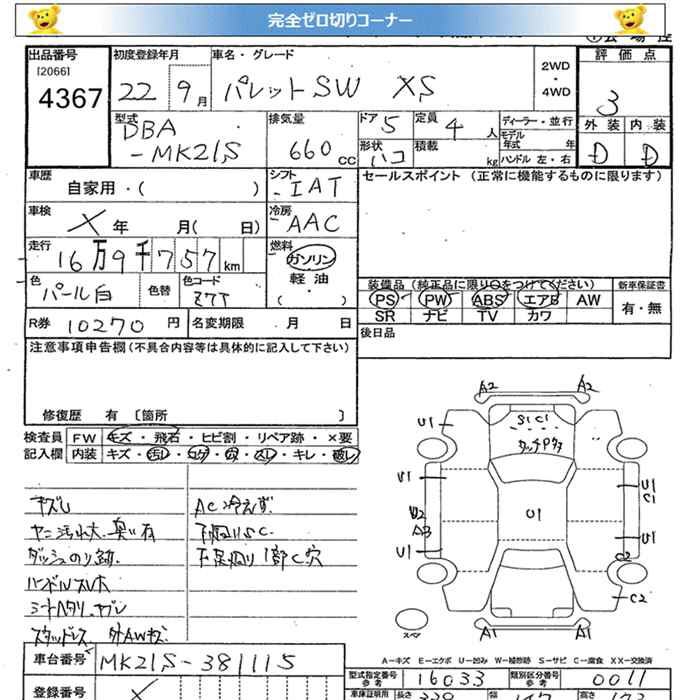 完全ゼロ切りコーナー
出品番号
[2066]
4367
初度登録年月
22 9月
車名・グレード
パレットSW XS
2WD
・
4WD
評価点
3
外装 内装
D D
型式
DBA
-MK21S
排気量
660cc
ドア 5
形状 ハコ
定員 4人
積載 kg
ディーラー・並行
モデル
年式 年
ハンドル 左・右
車歴
自家用・( )
シフト
IAT
セールスポイント (正常に機能するものに限ります)
車検
X 年 月( 日)
冷房
AAC
走行
16万9千757km
燃料
ガソリン
軽油
・
( )
色
パール白
色替
色コード
Z7T
装備品 (純正品に限り○をつけてください)
PS PW ABS エアB AW
SR ナビ TV カワ
新車保証書
有・無
R券 10270円
名変期限 月 日
後日品
注意事項申告欄 (不具合内容等は具体的に記入して下さい)
修復歴 有 〔箇所 〕
検査員 FW キズ・飛石・ヒビ割・リペア跡・×要
記入欄 内装 キズ・汚レ・コゲ・穴・スレ・キレ・破レ
キズU
ヤニ汚れ大、臭い有
ダッシュのり跡
ハンドルスレ大
シートヘタリ、ヤブレ
スタッドレス 外AWキズ
AC冷えず
下廻りSC
下足廻り1部C穴
A2 A2
U1
S1 C1
タッチPクタ
U1
U1
C1
U2
A3
U1
U1
U1
C2
C2
スペア
A1 A1
A−キズ E−エクボ U−凹み W−補修跡 S−サビ C−腐食 XX−交換済
車台番号 MK21S-381115
型式指定番号
参考
16033
類別区分番号
参考
0011
登録番号
車庫証明用
長さ
幅
高さ